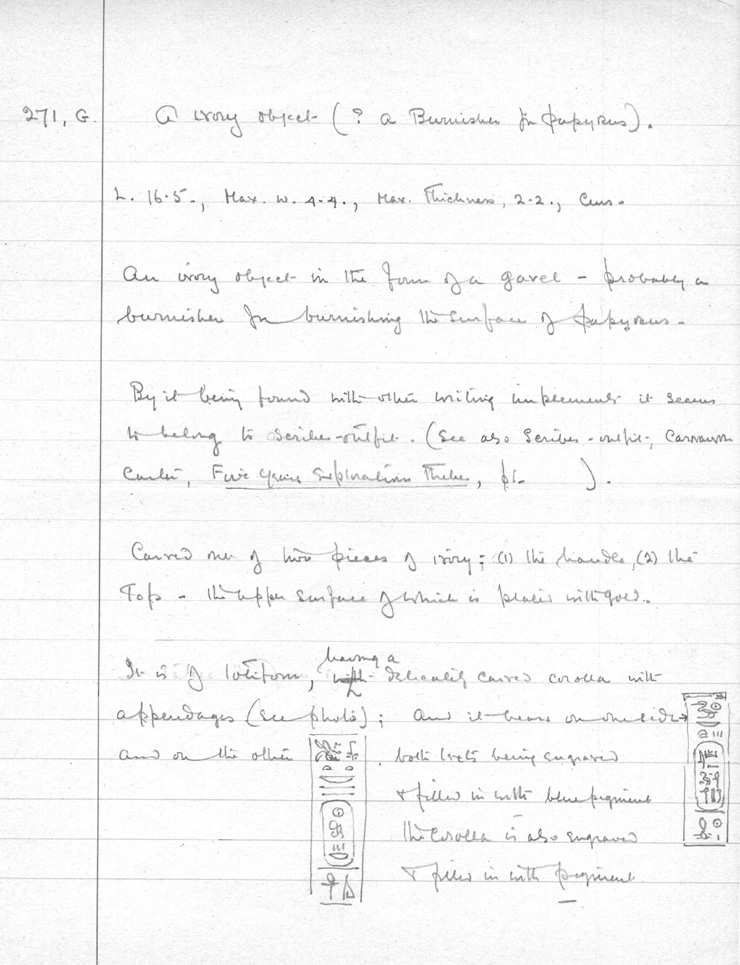 271, G. A ivory object (? a Burnisher for papyrus).
L. 16·5., Max. w. 4·4., Max. Thickness, 2·2., Cms.
An ivory object in the form of a gavel – probably a
burnisher for burnishing the surface of papyrus.
By it being found with other writing implements it seems
to belong to scribe-outfit. (See also Scribes-outfit, Carnarvon
Carter, Five Years Exploration Thebes, pl. ).
Carved out of two pieces of ivory: (1) the handle, (2) the
Top – the upper surface of which is plated with gold.
It is of lotiform, having a delicately carved corolla with
appendages (see photo); and it bears on one side
and on the other . both texts being engraved
& filled in with blue pigment
the corolla is also engraved
& filled in with pigment